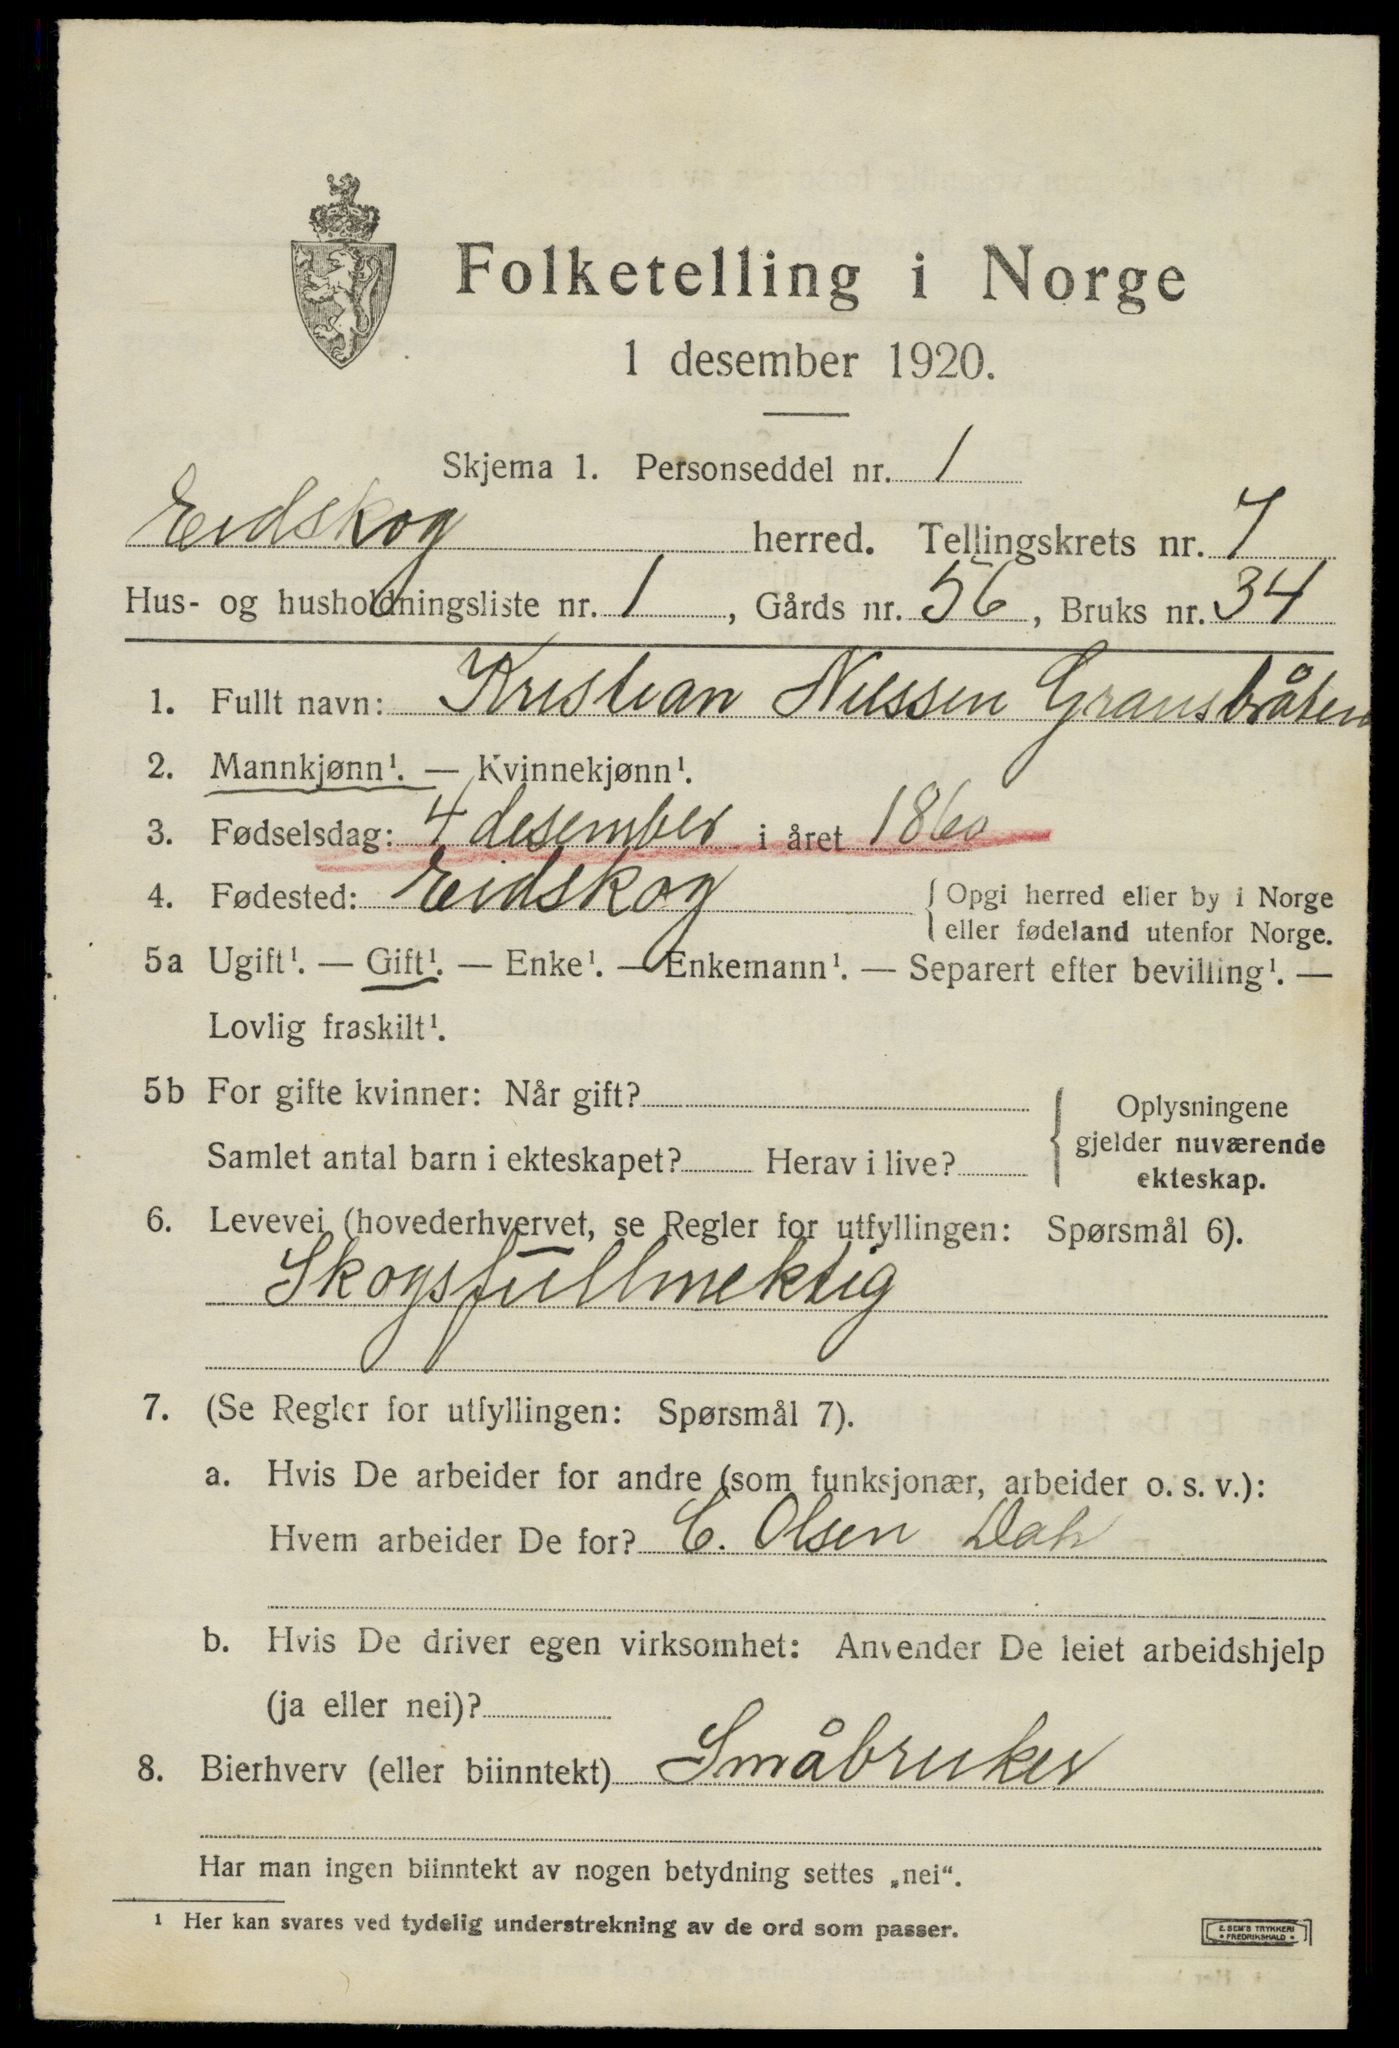 Folketelling i Norge
1 desember 1920.
Skjema 1. Personseddel nr. 1
Eidskog herred. Tellingskrets nr. 7
Hus- og husholdningsliste nr. 1, Gårds nr. 56, Bruks nr. 34
1. Fullt navn: Kristian Nilssen Gransbråten
2. Mannkjønn¹. — Kvinnekjønn¹.
3. Fødselsdag: 4 desember i året 1860
4. Fødested: Eidskog { Opgi herred eller by i Norge
eller fødeland utenfor Norge.
5a Ugift¹. — Gift¹. — Enke¹. — Enkemann¹. — Separert efter bevilling¹. —
Lovlig fraskilt¹.
5b For gifte kvinner: Når gift?
Samlet antal barn i ekteskapet? Herav i live?
{ Oplysningene
gjelder nuværende
ekteskap.
6. Levevei (hovederhvervet, se Regler for utfyllingen: Spørsmål 6).
Skogsfullmektig
7. (Se Regler for utfyllingen: Spørsmål 7).
a. Hvis De arbeider for andre (som funksjonær, arbeider o. s. v.):
Hvem arbeider De for? C. Olsen Dah
b. Hvis De driver egen virksomhet: Anvender De leiet arbeidshjelp
(ja eller nei)?
8. Bierhverv (eller biinntekt) Småbruker
Har man ingen biinntekt av nogen betydning settes „nei“.
¹ Her kan svares ved tydelig understrekning av de ord som passer.
E. SEM'S TRYKKERI
• FREDRIKSHALD •